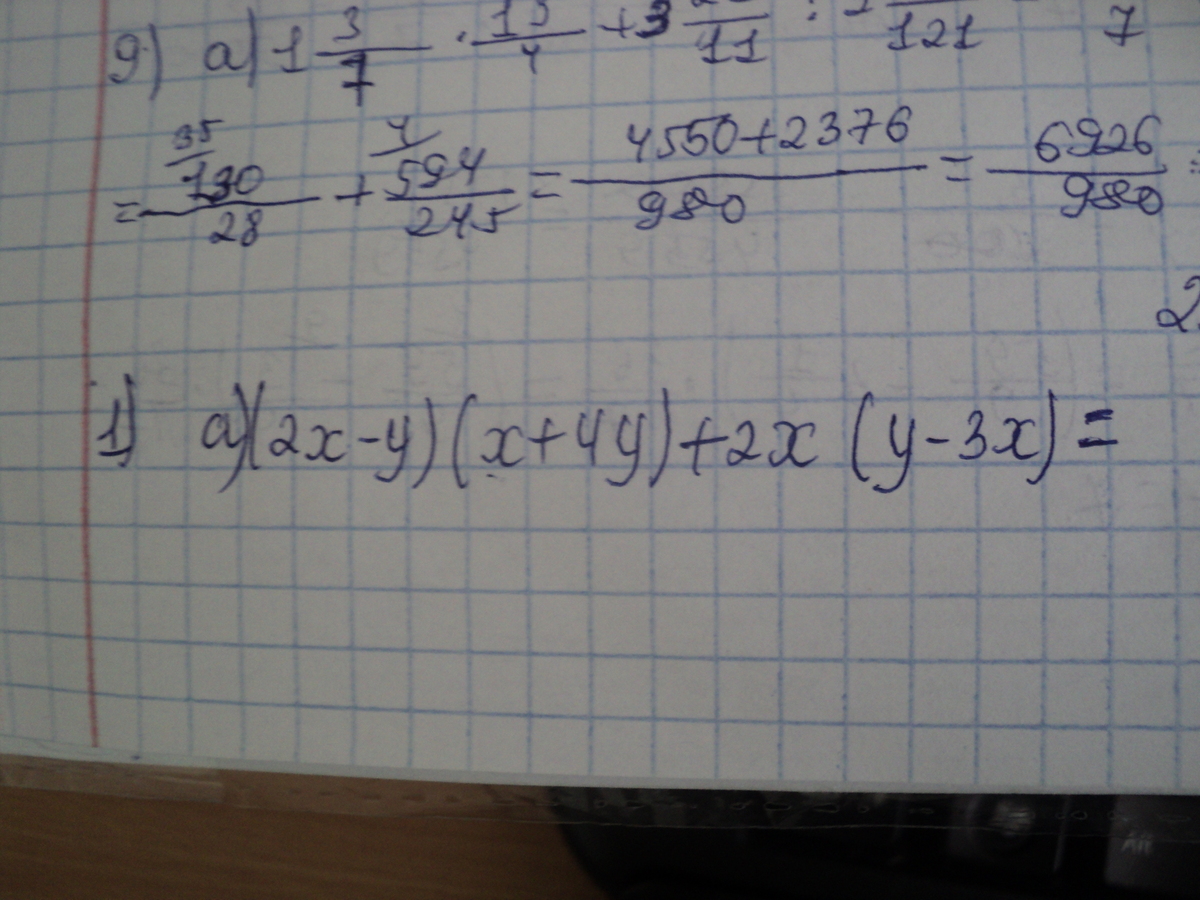 9) а) 1 3/7 · 13/4 + 3 /11 : /121 7
= 130/28 (35 + 594/245 (4 = 4550+2376/980 = 6926/980 =
2.
1) а) (2x-y)(x+4y)+2x (y-3x) =
Alt